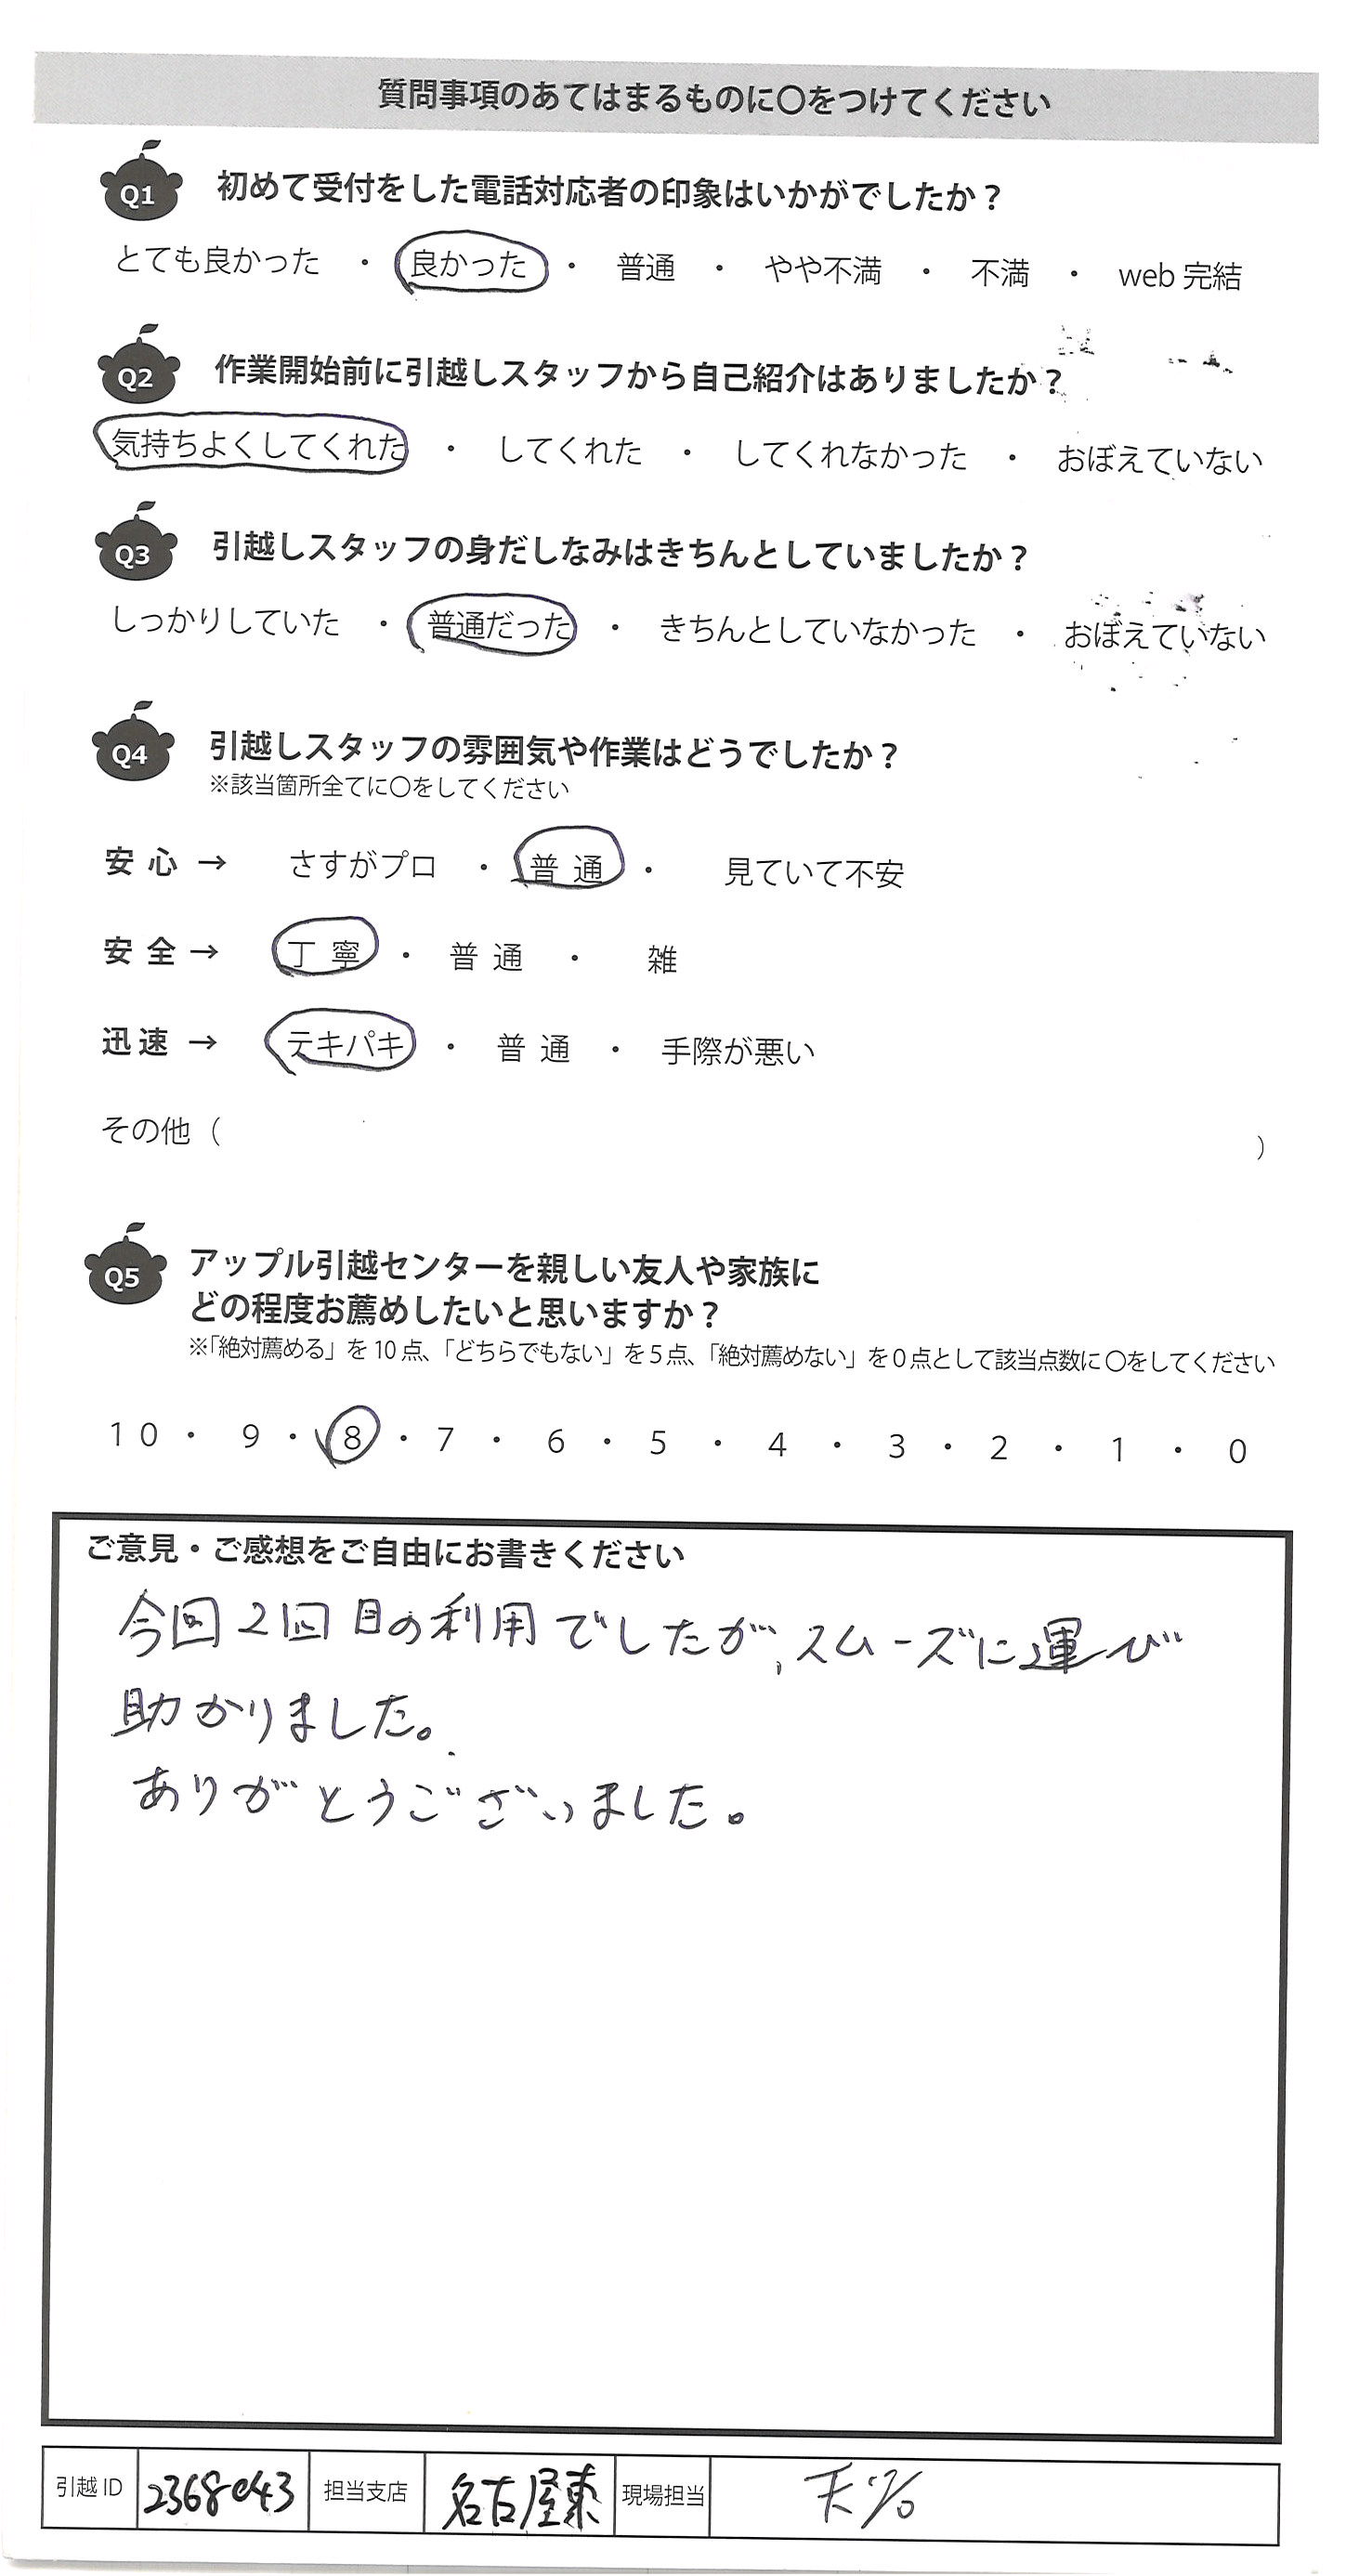 質問事項のあてはまるものに〇をつけてください
Q1 初めて受付をした電話対応者の印象はいかがでしたか？
とても良かった ・ 良かった ・ 普通 ・ やや不満 ・ 不満 ・ web 完結
Q2 作業開始前に引越しスタッフから自己紹介はありましたか？
気持ちよくしてくれた ・ してくれた ・ してくれなかった ・ おぼえていない
Q3 引越しスタッフの身だしなみはきちんとしていましたか？
しっかりしていた ・ 普通だった ・ きちんとしていなかった ・ おぼえていない
Q4 引越しスタッフの雰囲気や作業はどうでしたか？
※該当箇所全てに〇をしてください
安心 → さすがプロ ・ 普通 ・ 見ていて不安
安全 → 丁寧 ・ 普通 ・ 雑
迅速 → テキパキ ・ 普通 ・ 手際が悪い
その他（ ）
Q5 アップル引越センターを親しい友人や家族に
どの程度お薦めしたいと思いますか？
※「絶対薦める」を10点、「どちらでもない」を5点、「絶対薦めない」を0点として該当点数に〇をしてください
10 ・ 9 ・ 8 ・ 7 ・ 6 ・ 5 ・ 4 ・ 3 ・ 2 ・ 1 ・ 0
ご意見・ご感想をご自由にお書きください
今回2回目の利用でしたが、スムーズに運び
助かりました。
ありがとうございました。
引越ID 2368043 担当支店 名古屋東 現場担当